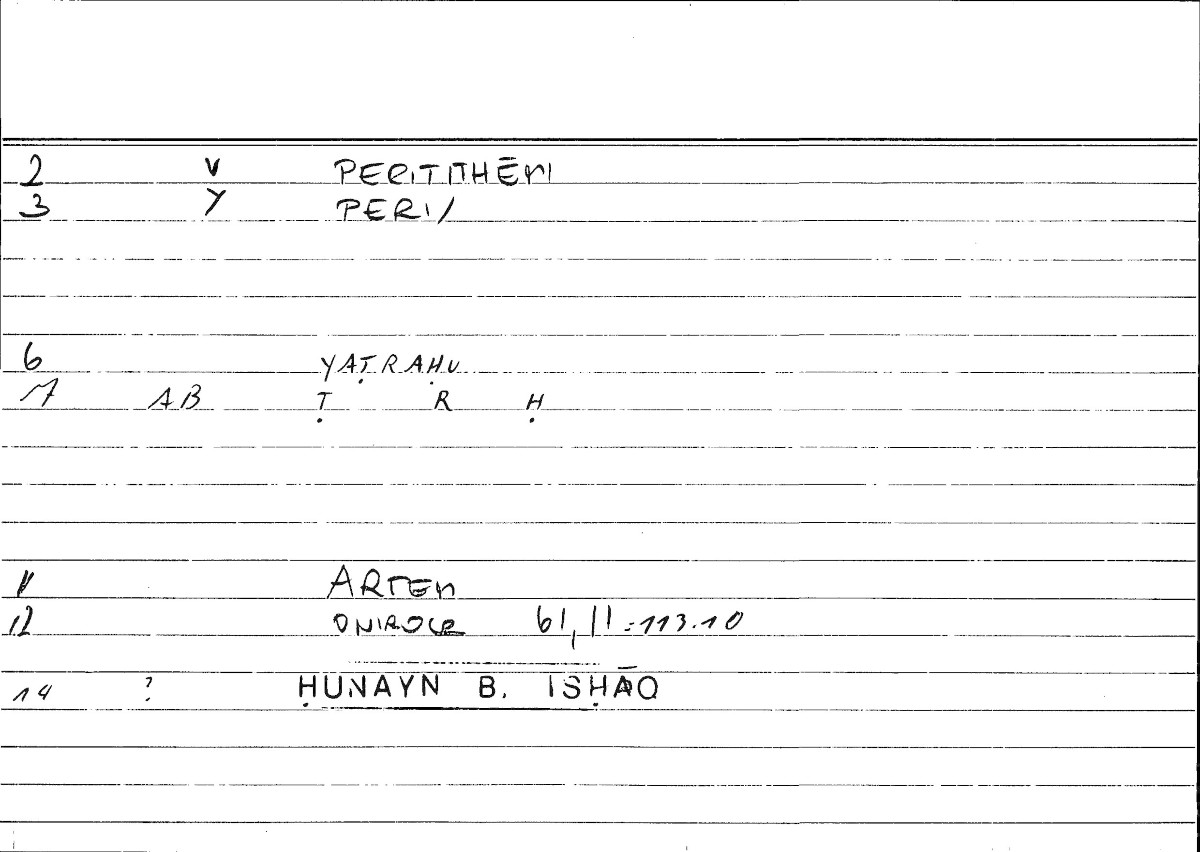 2 V PERITITHĒMI
3 Y PERI/
6 YAṬRAḤU
7 AB Ṭ R Ḥ
11 ARTEM
12 ONIROCR 61,11=113.10
14 ? ḤUNAYN B. ISḤĀQ